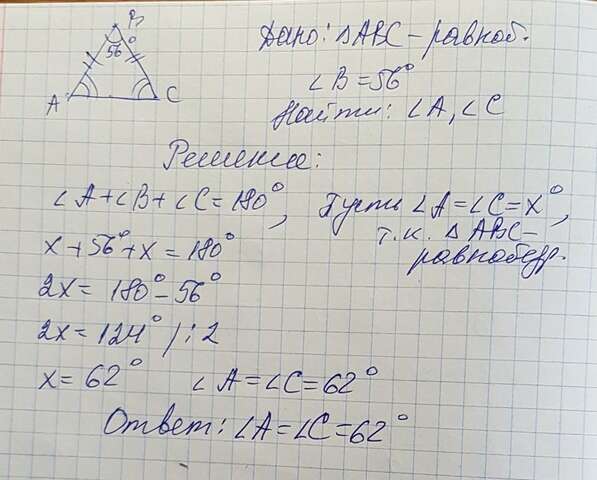 B
56°
A
C
Дано: ΔABC – равноб.
∠B = 56°
Найти: ∠A, ∠C
Решение:
∠A + ∠B + ∠C = 180°, Пусть ∠A = ∠C = x°,
т.к. ΔABC –
равнобедр.
x + 56° + x = 180°
2x = 180° – 56°
2x = 124° /: 2
x = 62° ∠A = ∠C = 62°
Ответ: ∠A = ∠C = 62°